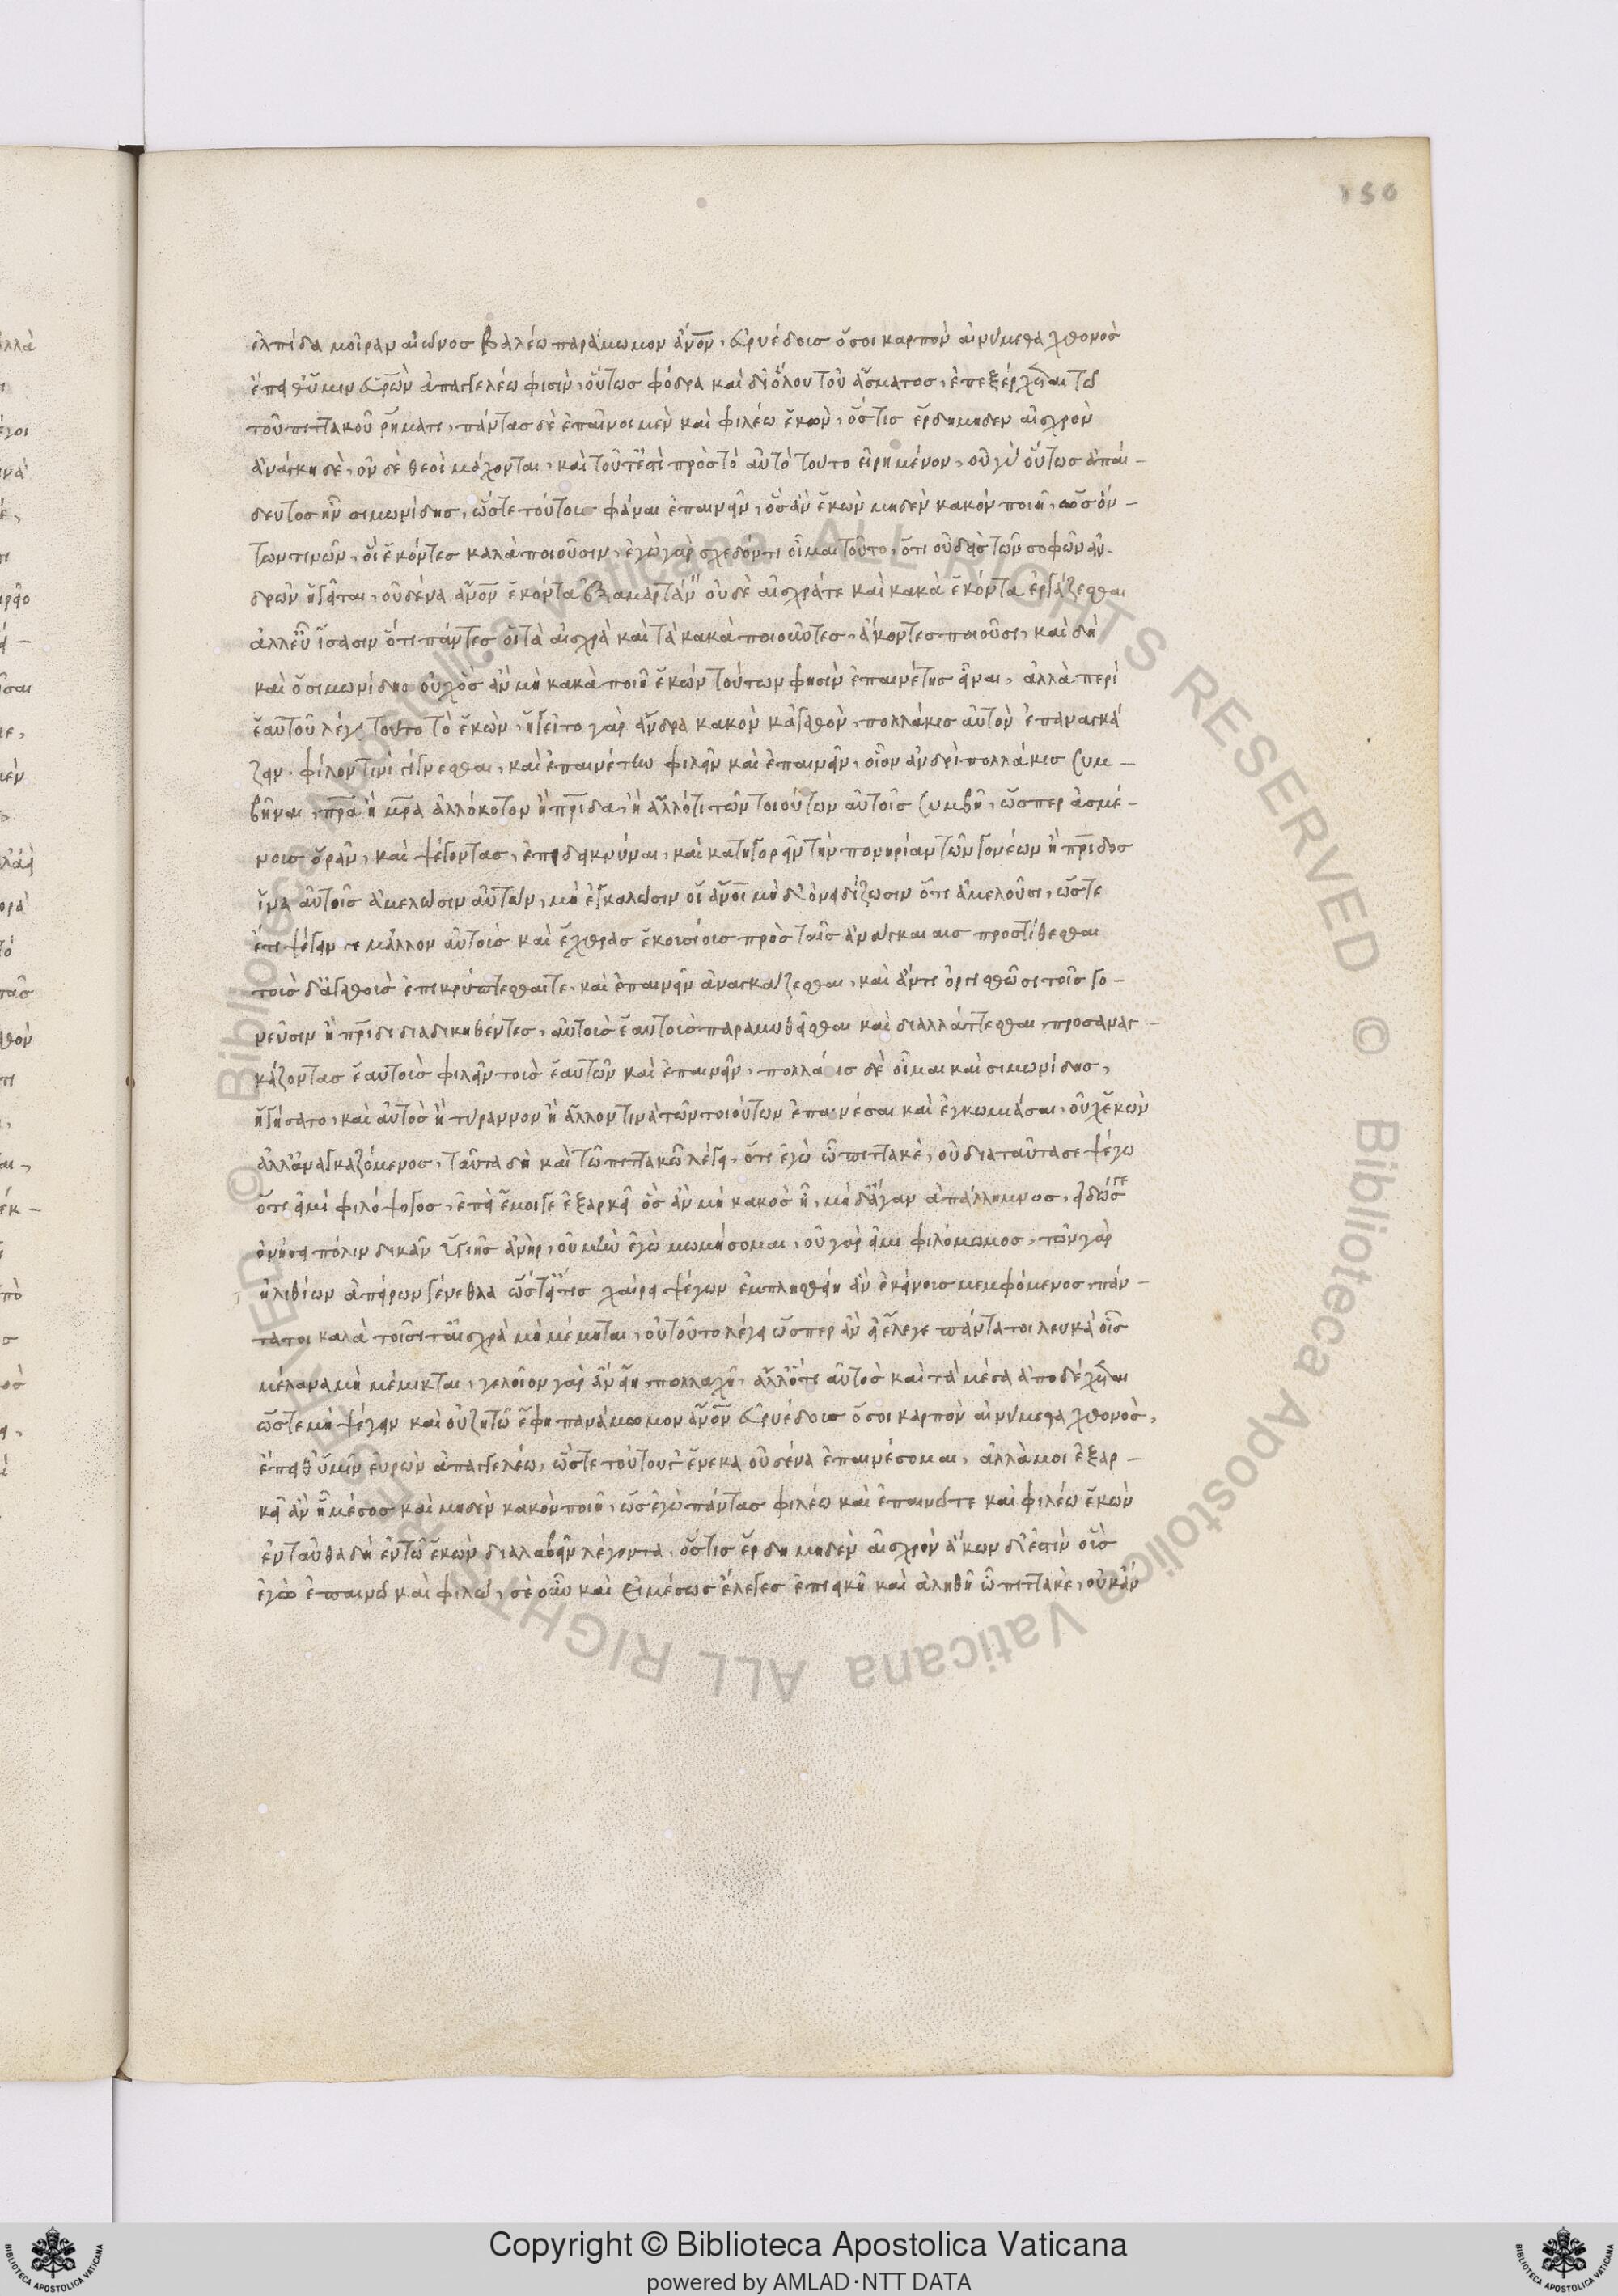 150
ἐλπίδα μοῖραν αἰῶνος βαλέω παράμωμον ἄνον, εὐρυέδοισ ὅσοι καρπὸν αἰνύμεθα χθονὸς
ἐπεὶ θ' ὕμιν εὑρὼν ἀπαγγελέω φισὶν, οὕτως φόδρα καὶ δι' ὅλου τοῦ ᾄσματος, ἐπεξέρχεται τῶ
τοῦ πιττακοῦ ῥήματι, πάντας δὲ ἐπαίνοιμεν καὶ φιλέω ἑκὼν, ὅστις ἔρδη μηδεν αἰσχρὸν
ἀνάγκη δὲ, οὐ δὲ θεοὶ μάχονται, καὶ τοῦτ' ἐστὶ πρὸς τὸ αὐτὸ τοῦτο εἰρημένον, οὐ γὰρ οὕτως ἀπαί-
δευτος ἦν σιμωνίδης, ὥστε τούτοις φάναι ἐπαινεῖν, ὃς ἂν ἑκὼν μηδὲν κακὸν ποιῆ, ὡς ὄν-
των τινῶν, οἳ ἑκόντες καλὰ ποιοῦσιν, ἐγὼ γὰρ σχεδόν τι οἶμαι τοῦτο, ὅτι οὐδεὶς τῶν σοφῶν ἀν-
δρῶν ἡγεῖται, οὐδένα ἄνον ἑκόντα ἐξαμαρτάν οὐδὲ αἰσχρά τε καὶ κακὰ ἑκόντα ἐργάζεσθαι
ἀλλ' εὖ ἴσασιν ὅτι πάντες οἱ τὰ αἰσχρὰ καὶ τὰ κακὰ ποιοῦντες, ἄκοντες ποιοῦσι, καὶ δὴ
καὶ ὁ σιμωνίδης οὐχ ὃς ἂν μὴ κακὰ ποιῆ ἑκὼν τούτων φησὶν ἐπαινέτης εἶναι, ἀλλὰ περὶ
ἑαυτοῦ λέγει τοῦτο τὸ ἑκὼν, ἡγεῖτο γὰρ ἄνδρα κακὸν κἀγαθὸν, πολλάκις αὑτὸν ἐπαναγκά
ζειν φίλον τινὶ γίγνεσθαι, καὶ ἐπαινέτην φιλεῖν καὶ ἐπαινεῖν, οἷον ἀνδρὶ πολλάκις συμ-
βῆναι, πρα ἢ μρα ἀλλόκοτον ἢ πριδα, ἢ ἄλλό τι τῶν τοιούτων αὐτοῖς συμβῆ, ὥσπερ ἀσμέ-
νους ὁρᾶν, καὶ ψέγοντας, ἐπιδεικνύναι, καὶ κατηγορεῖν τὴν πονηρίαν τῶν γονέων ἢ πριδος
ἵνα αὐτοῖς ἀμελῶσιν αὐτῶν, μὴ ἐγκαλῶσιν οἱ ἄνοι μὴ δ' ὀνειδίζωσιν ὅτι ἀμελοῦσι, ὥστε
ἔτι ψέγειν τε μᾶλλον αὐτοὺς καὶ ἔχθρας ἑκουσίοις πρὸς ταῖς ἀναγκαίαις προστίθεσθαι
τοὺς δ' ἀγαθοὺς ἐπικρύπτεσθαί τε, καὶ ἐπαινεῖν ἀναγκάζεσθαι, καὶ ἄν τι ὀργισθῶσι τοῖς γο-
νεῦσιν ἢ πριδι διαδικηθέντες, αὐτοὺς ἑαυτοὺς παραμυθεῖσθαι καὶ διαλλάττεσθαι προσαναγ-
κάζοντας ἑαυτοὺς φιλεῖν τοὺς ἑαυτῶν καὶ ἐπαινεῖν, πολλάκις δὲ οἶμαι καὶ σιμωνίδης,
ἡγήσατο, καὶ αὐτὸς ἢ τύραννον ἢ ἄλλον τινὰ τῶν τοιούτων ἐπαινέσαι καὶ ἐγκωμιάσαι, οὐχ ἑκὼν
ἀλλ' ἀναγκαζόμενος, ταῦτα δὴ καὶ τῶ πιττακῶ λέγει, ὅτι ἐγὼ ὦ πιττακὲ, οὐ διαταῦτα σε ψέγω
ὅτι εἰμὶ φιλόψογος, ἐπεὶ ἔμοιγε ἐξαρκεῖ ὃς ἂν μὴ κακὸς ἦ, μὴ δ' ἄγαν ἀπάλλημνος, εἰδώς γε
ὀνήσει πόλιν δικὰν ὑγιὴς ἀνὴρ, οὐ μὴν ἐγὼ μωμήσομαι, οὐ γάρ εἰμι φιλόμωμος, τῶν γὰρ
ἠλιθίων ἀπείρων γένεθλα ὥστ' εἴ τις χαίρει ψέγων ἐμπλησθείη ἂν ἐκείνοις μεμφόμενος πάν-
τά τοι καλὰ τοῖσι τ' αἰσχρὰ μὴ μέμικται, οὐ τοῦτο λέγει ὥσπερ ἂν εἰ ἔλεγε πάντα τοι λευκὰ οἷς
μέλανα μὴ μέμικται, γελοῖον γὰρ ἂν εἴη πολλαχῆ, ἀλλ' ὅτι αὐτὸς καὶ τὰ μέσα ἀποδέχεται
ὥστε μὴ ψέγειν καὶ οὐ ζητῶ ἔφη πανάμωμον ἄνον εὐρυέδοις ὅσοι καρπὸν αἰνύμεθα χθονὸς,
ἔπειθ' ὕμιν εὑρὼν ἀπαγγελέω, ὥστε τούτου γ' ἕνεκα οὐδένα ἐπαινέσομαι, ἀλλά μοι ἐξαρ-
κεῖ ἂν ἦ μέσος καὶ μηδὲν κακὸν ποιῆ, ὡς ἐγὼ πάντας φιλέω καὶ ἐπαινῶ τε καὶ φιλέω ἑκὼν
ἐνταῦθα δὴ ἐν τῶ ἑκὼν διαλαβεῖν λέγοντα, ὅστις ἔρδη μηδὲν αἰσχρὸν ἄκων δ' ἐστὶν οὓς
ἐγὼ ἐπαινῶ καὶ φιλῶ, σὲ οὖν καὶ εἰ μέσως ἔλεγες ἐπιεικῆ καὶ ἀληθῆ ὦ πιττακὲ, οὐκ ἂν
© Biblioteca Apostolica Vaticana ALL RIGHTS RESERVED
Copyright © Biblioteca Apostolica Vaticana
powered by AMLAD·NTT DATA